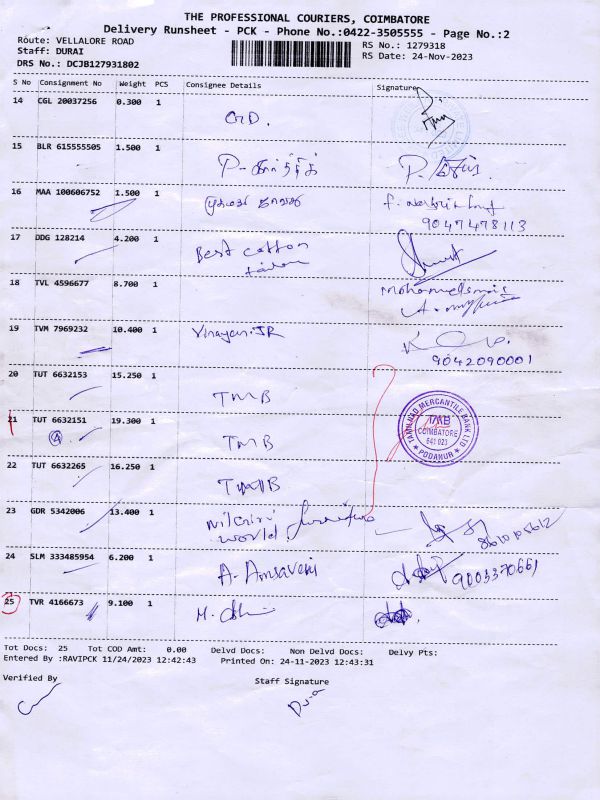 THE PROFESSIONAL COURIERS, COIMBATORE
Delivery Runsheet - PCK - Phone No.:0422-3505555 - Page No.:2
Route: VELLALORE ROAD
Staff: DURAI
RS No.: 1279318
RS Date: 24-Nov-2023
DRS No.: DCJB127931802
S No Consignment No Weight PCS Consignee Details Signature
14 CGL 20037256 0.300 1
15 BLR 615555505 1.500 1 P-
16 MAA 100606752 1.500 1
9047478113
17 DDG 128214 4.200 1 Best cotton
18 TVL 4596677 8.700 1
19 TVM 7969232 10.400 1 Vinayan.JR
9042090001
20 TUT 6632153 15.250 1 TMB
21 TUT 6632151 19.300 1 TMB
A
TAMILNAD MERCANTILE BANK LTD
TMB
COIMBATORE
641 023
* PODANUR *
22 TUT 6632265 16.250 1 TMB
23 GDR 5342006 13.400 1 Nilgiri furniture
world. 8610105612
24 SLM 333485954 6.200 1 A. Amsaveni 9003370661
25 TVR 4166673 9.100 1 M.
Tot Docs: 25 Tot COD Amt: 0.00 Delvd Docs: Non Delvd Docs: Delvy Pts:
Entered By :RAVIPCK 11/24/2023 12:42:43 Printed On: 24-11-2023 12:43:31
Verified By Staff Signature